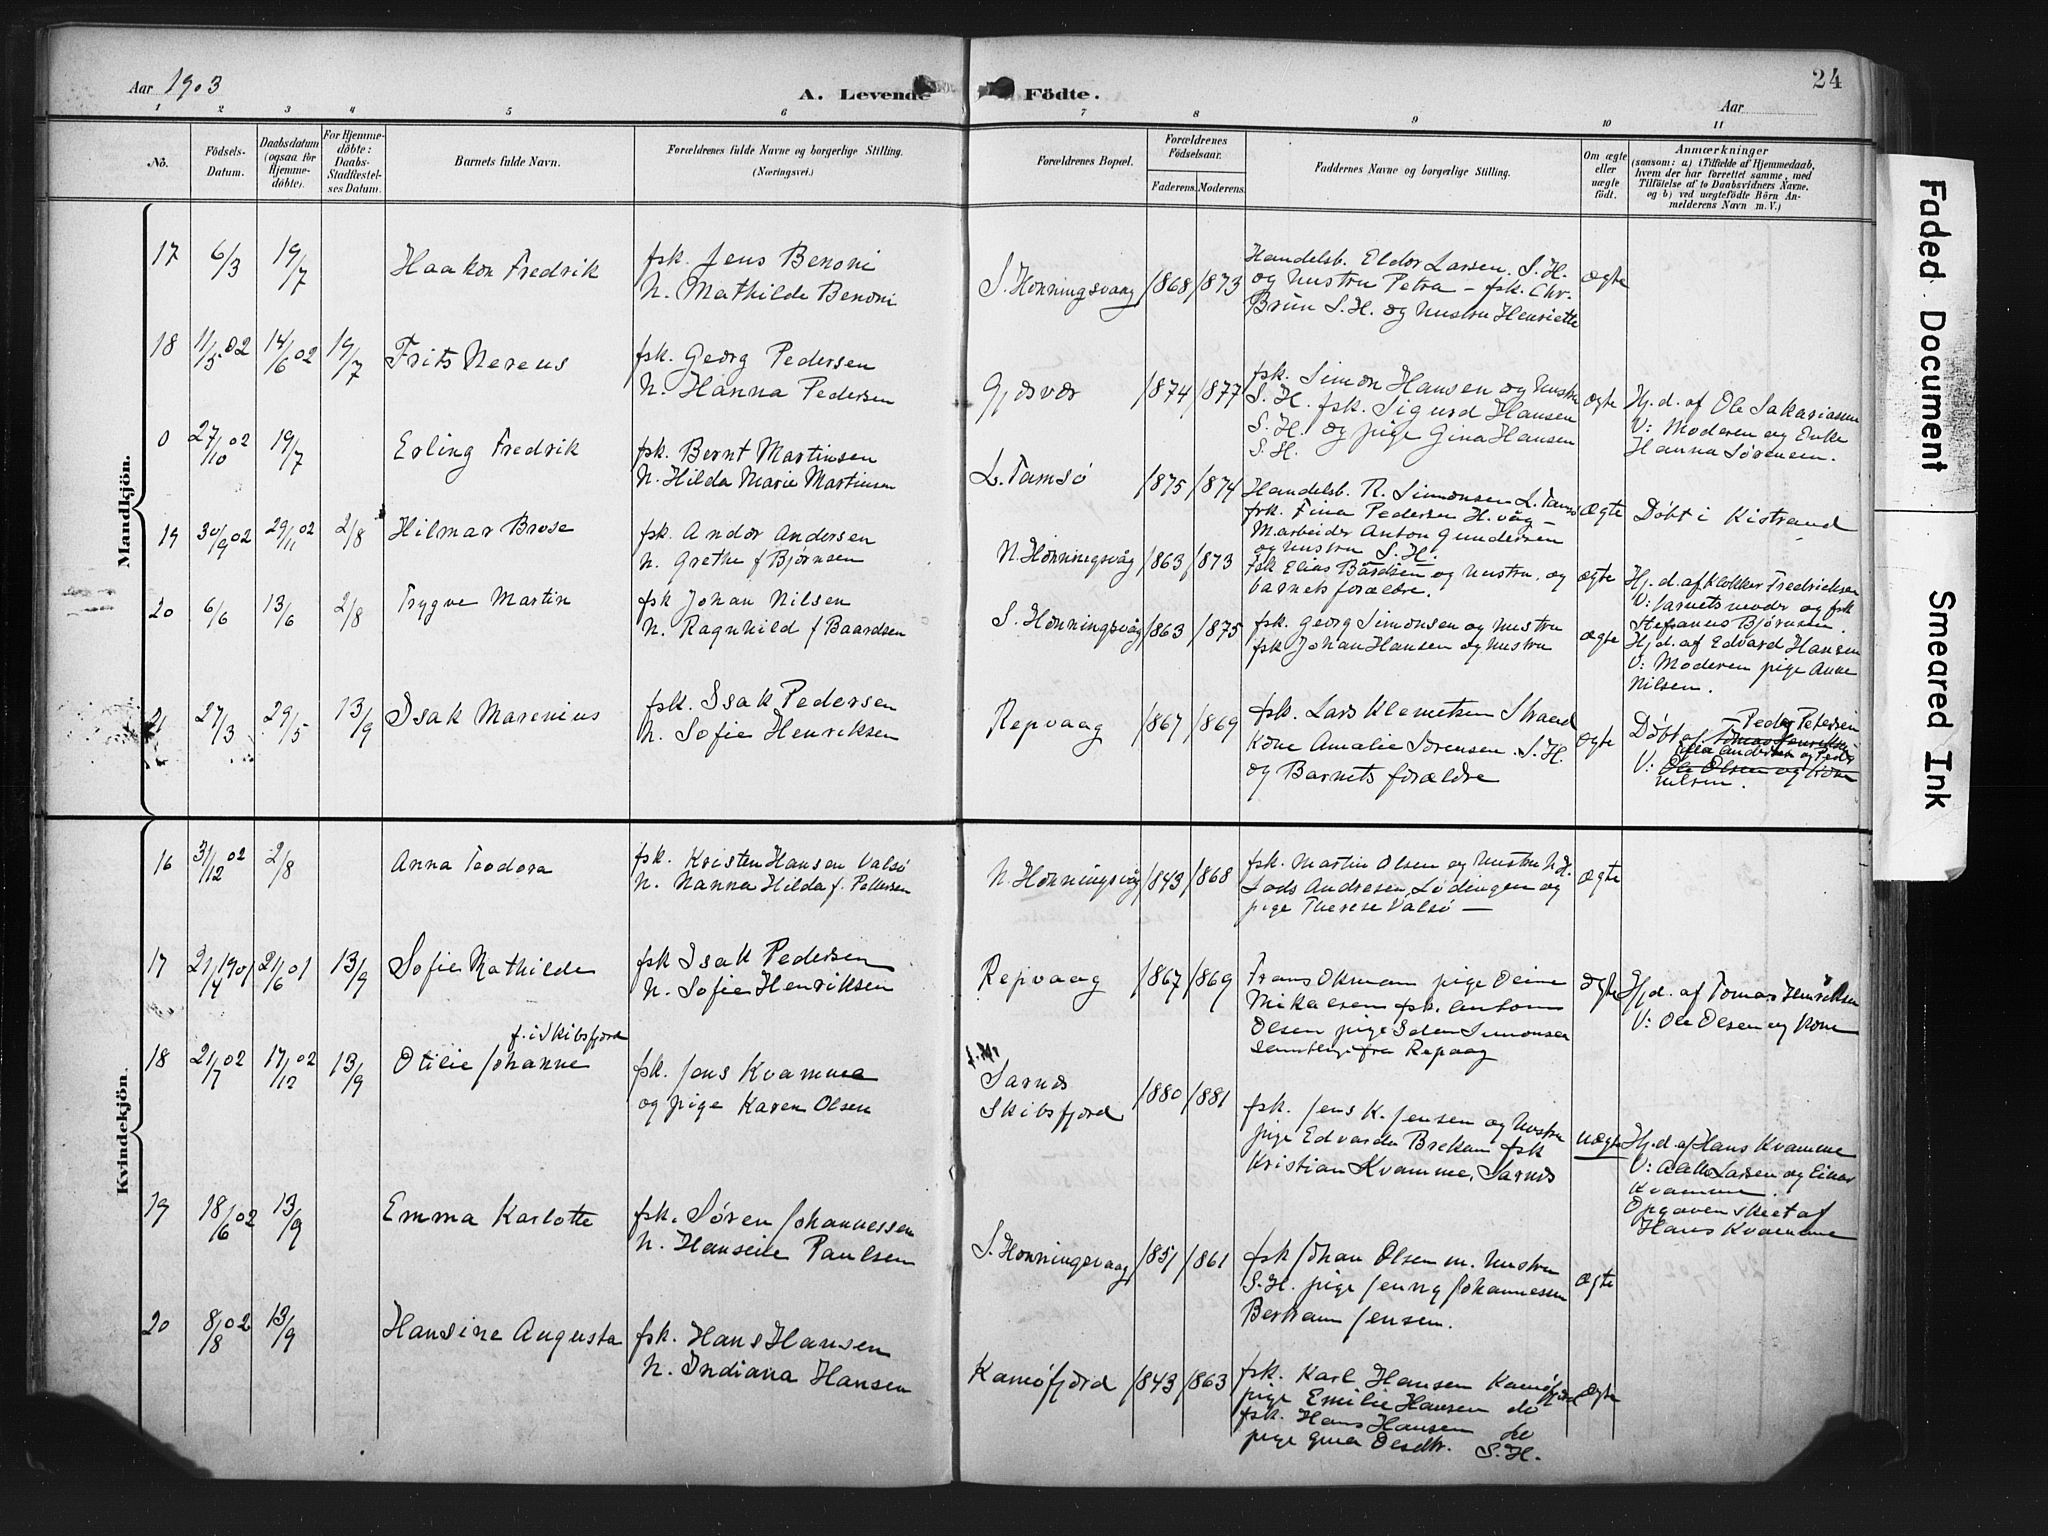 24
Aar 1903
A. Levende Födte.
Aar
1 2 3 4 5 6 7 8 9 10 11
No.
Födsels-Datum.
Daabsdatum (ogsaa for Hjemme-døbte).
For Hjemme-döbte: Daabs-Stadfæstel-ses Datum.
Barnets fulde Navn.
Forældrenes fulde Navne og borgerlige Stilling.
(Næringsvei.)
Forældrenes Bopæl.
Forældrenes Födselsaar.
Faderens. Moderens.
Faddernes Navne og borgerlige Stilling.
Om ægte eller uægte födt.
Anmærkninger
(saasom: a) i Tilfælde af Hjemmedaab,
hvem der har forrettet samme, med
Tilföielse af to Daabsvidners Navne.
og b) ved uægtefödte Börn An-
melderens Navn m. V.)
Mandkjön.
17 6/3 19/7 Haakon Fredrik
fsk. Jens Benoni
N. Mathilde Benoni
S. Honningsvaag 1868 1873
Handelsb. Eldor Larsen. S. H.
og Hustru Petra – fsk. Chr.
Brun S. H. og Hustru Henriette
ægte
18 11/5 02 14/6 02 19/7 Frits Nereus
fsk. Georg Pedersen
N. Hanna Pedersen
Gjesvær 1874 1877
fsk. Simon Hansen og Hustru
S. H. fsk. Sigurd Hansen
S. H. og pige Gina Hansen
S. H.
ægte
Hj. d. af Ole Sakariassen
V: Moderen og Enke
Hanna Sørensen.
0 27/10 02 19/7 Erling Fredrik
fsk. Bernt Martinsen
N. Hilda Marie Martinsen
L. Tamsö 1875 1874
Handelsb. R. Simonsen L. Tamsö
frk. Fina Pedersen H.våg –
Marbeider Anton Gundersen
og Hustru S. H.
ægte
Døbt i Kistrand
19 30/9 02 29/11 02 2/8 Hilmar Brose
fsk. Andor Andersen
N. Grethe f Bjørnsen
N. Honningsvåg 1863 1873
fsk Elias Bårdsen og Hustru. og
barnets forældre.
ægte
Hj. d. af klokker Fredriksen
V: barnets moder og fsk
Stefanus Bjørnsen.
20 6/6 13/6 2/8 Trygve Martin
fsk Johan Nilsen
N. Ragnhild f Baardsen
S. Honningsvåg 1863 1875
fsk. Georg Simonsen og Hustru
fsk Johan Hansen og Hustru
ægte
Hj. d. af Edvard Hansen
V: Moderen pige Anne
Nilsen.
21 27/3 29/5 13/9 Isak Marenius
fsk. Isak Pedersen
N. Sofie Henriksen
Repvaag 1867 1869
fsk. Lars Klemetsen Strand
Kone Amalie Sørensen. S. H.
og Barnets forældre
ægte
Peder Petersen
Döbt af Tomas Henriksen
V: Ole Olsen og Kone
Nilsen.
Kvindekjön.
16 31/12 02 2/8 Anna Teodora
fsk. Kristen Hansen Valsö
N. Nanna Hilda f. Pettersen
N. Honningsvåg 1843 1868
fsk. Martin Olsen og Hustru N. H.
Lods Andresen, Lödingen og
pige Therese Valsö –
ægte
17 21/4 1901 21/6 01 13/9 Sofie Mathilde
fsk Isak Pedersen
N. Sofie Henriksen
Repvaag 1867 1869
Frans Okman pige Oline
Mikalsen fsk. Anton
Olsen pige Iden Simonsen
samtlige fra Repvaag
ægte
Hj. d. af Tomas Henriksen
V: Ole Olsen og Kone
f. i Skibsfjord
18 21/7 02 17/12 02 13/9 Otilie Johanne
fsk. Jens Kvamme
og pige Karen Olsen
Sarnes
Skibsfjord 1880 1881
fsk. Jens K. Jensen og Hustru
pige Edvarda Brekan fsk
Kristian Kvamme, Sarnes
uægte
Hj. d. af Hans Kvamme
V: Larsen og Einar
Kvamme.
Opgaven skeet af
Hans Kvamme
19 18/6 02 13/9 Emma Karlotte
fsk. Søren Johannessen
N. Hanseine Paulsen
S. Honningsvaag 1851 1861
fsk Johan Olsen m. Hustru
S. H. pige Jenny Johannessen
Bertram Jensen.
ægte
20 8/8 02 13/9 Hansine Augusta
fsk. Hans Hansen
N. Indiana Hansen
Kamöfjord 1843 1863
fsk. Karl Hansen Kamöfjord
pige Emilie Hansen do
fsk. Hans Hansen do
pige Gina Olsdtr. S. H.
ægte
Faded Document
Smeared Ink